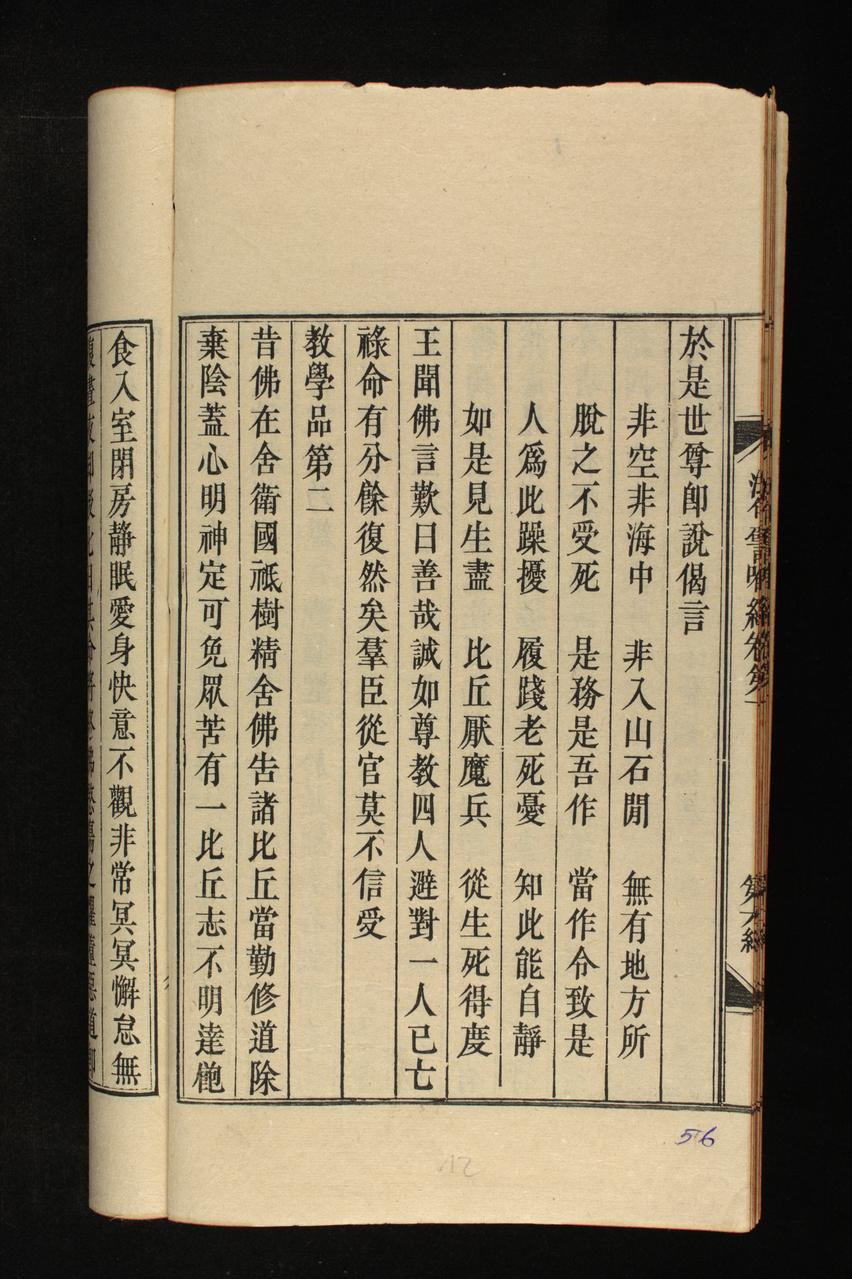 於是世尊卽說偈言
非空非海中　非入山石閒　無有地方所
脫之不受死　是務是吾作　當作令致是
人爲此躁擾　履踐老死憂　知此能自靜
如是見生盡　比丘厭魔兵　從生死得度
王聞佛言歎曰善哉誠如尊教四人避對一人已亡
祿命有分餘復然矣羣臣從官莫不信受
教學品第二
昔佛在舍衛國祇樹精舍佛告諸比丘當勤修道除
棄陰蓋心明神定可免眾苦有一比丘志不明達飽
食入室閉房靜眠愛身快意不觀非常冥冥懈怠無
56
12